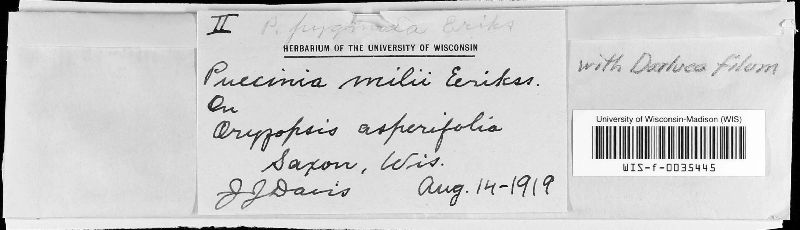 II P. pygmaea Eriks
HERBARIUM OF THE UNIVERSITY OF WISCONSIN
Puccinia milii Eerikss.
On
Oryzopsis asperifolia
Saxon, Wis.
J J Davis Aug. 14-1919
with Darluca filum
University of Wisconsin-Madison (WIS)
WIS-f-0035445